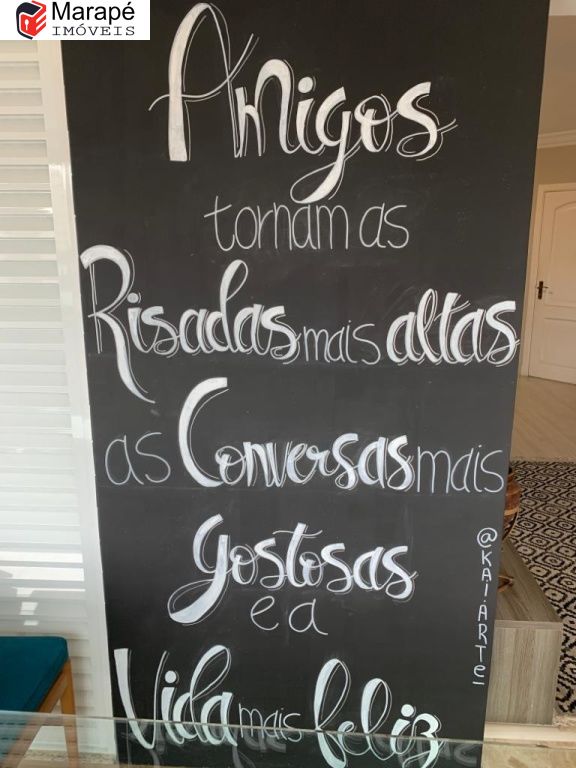 Marapé
IMÓVEIS
Amigos
tornam as
Risadas mais altas
as Conversas mais
gostosas
e a
Vida mais feliz
@KAI.ARTE_